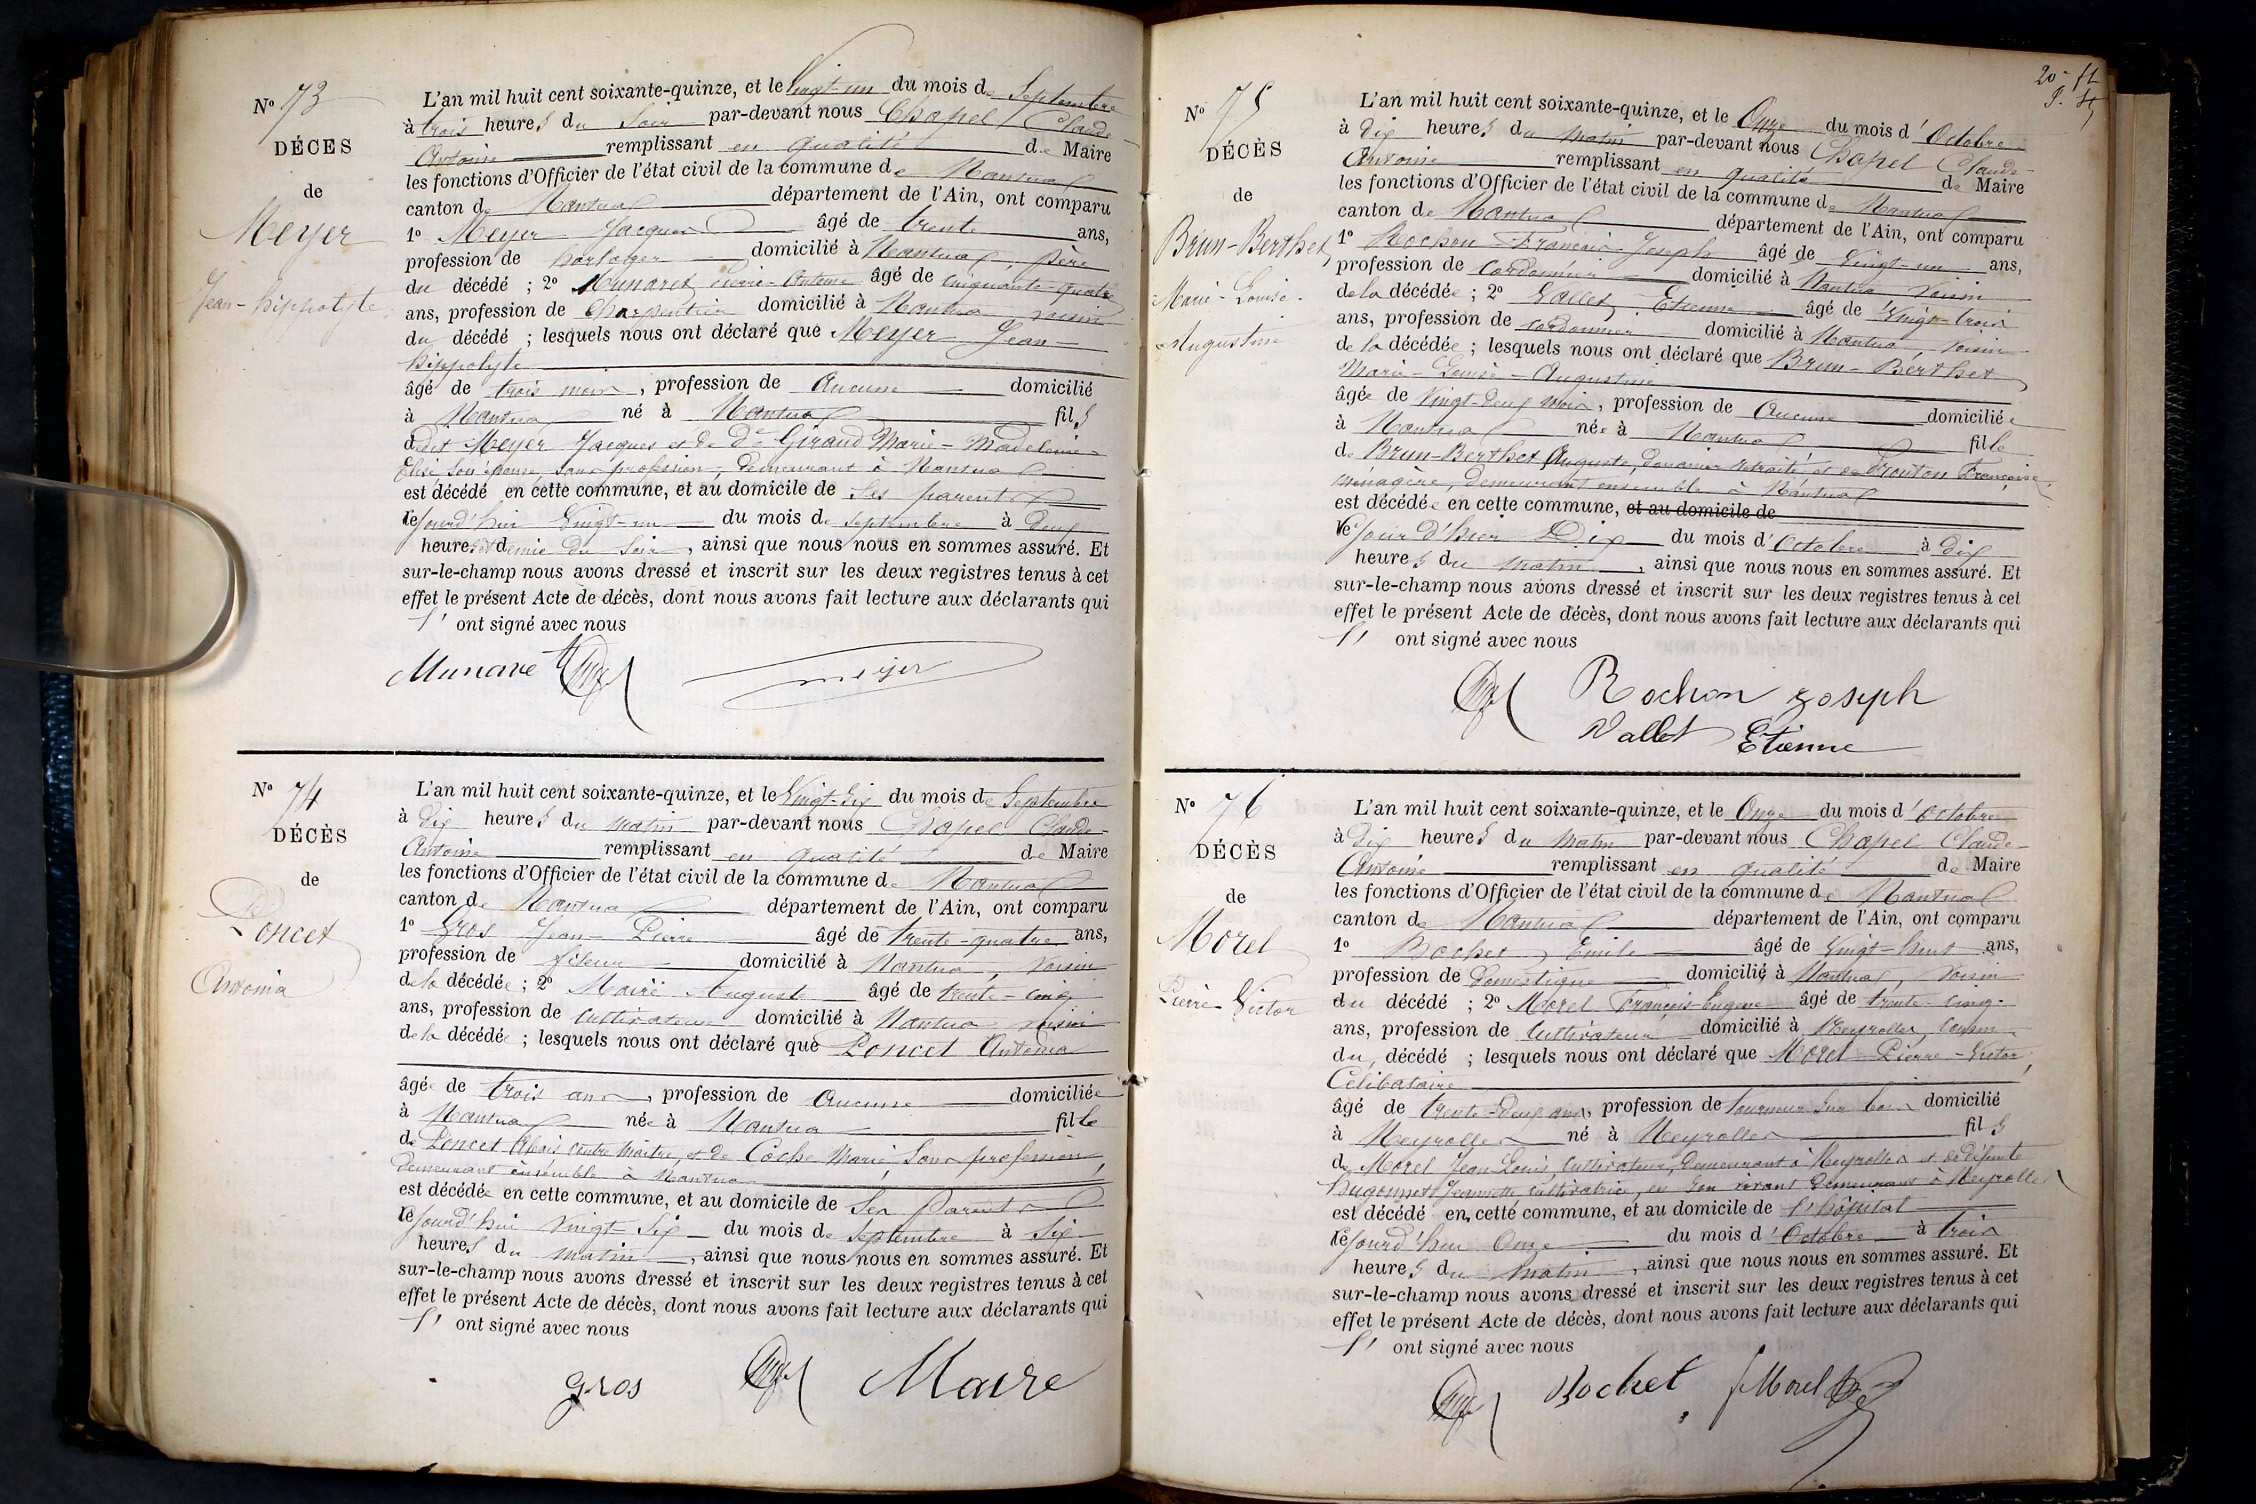 N° 73
DÉCES
de
Meyer
Jean-hippolyte
L'an mil huit cent soixante-quinze, et le Vingt-un du mois de Septembre
à trois heures du Soir par-devant nous Chapel Claude
Antoine remplissant en qualité de Maire
les fonctions d'Officier de l'état civil de la commune de Nantua
canton de Nantua département de l'Ain, ont comparu
1° Meyer Jacques âgé de trente ans,
profession de horloger domicilié à Nantua, père
du décédé ; 2° Munaret Pierre-Antoine âgé de cinquante-quatre
ans, profession de Charpentier domicilié à Nantua, voisin
du décédé ; lesquels nous ont déclaré que Meyer Jean-
hippolyte
âgé de trois mois, profession de Aucune domicilié
à Nantua né à Nantua fils
dudit Meyer Jacques et de De Giraud Marie-Madeleine-
Elise son épouse, sans profession, demeurant à Nantua
est décédé en cette commune, et au domicile de Ses parents
Cejourd'hui Vingt-un du mois de septembre à deux
heures et demie du Soir, ainsi que nous nous en sommes assuré. Et
sur-le-champ nous avons dressé et inscrit sur les deux registres tenus à cet
effet le présent Acte de décès, dont nous avons fait lecture aux déclarants qui
l' ont signé avec nous
Munaret meyer
N° 74
DÉCÈS
de
Poncet
Antonia
L'an mil huit cent soixante-quinze, et le Vingt-Six du mois de Septembre
à dix heures du matin par-devant nous Chapel Claude-
Antoine remplissant en qualité de Maire
les fonctions d'Officier de l'état civil de la commune de Nantua
canton de Nantua département de l'Ain, ont comparu
1° Gros Jean-Pierre âgé de trente-quatre ans,
profession de fileur domicilié à Nantua, voisin
de la décédée ; 2° Maire Auguste âgé de trente-cinq
ans, profession de Cultivateur domicilié à Nantua, voisin
de la décédée ; lesquels nous ont déclaré que Poncet Antonia
âgée de trois ans, profession de Aucune domiciliée
à Nantua née à Nantua fille
de Poncet Alexis Contre maître, et de Coche Marie, Sans profession,
demeurant ensemble à Nantua
est décédée en cette commune, et au domicile de Ses Parents
Cejourd'hui Vingt-Six du mois de septembre à Six
heures du matin, ainsi que nous nous en sommes assuré. Et
sur-le-champ nous avons dressé et inscrit sur les deux registres tenus à cet
effet le présent Acte de décès, dont nous avons fait lecture aux déclarants qui
l' ont signé avec nous
gros Maire
N° 75
DÉCÈS
de
Brun-Berthet
Marie-Louise-
Augustine
L'an mil huit cent soixante-quinze, et le Onze du mois d'Octobre
à dix heures du matin par-devant nous Chapel Claude-
Antoine remplissant en qualité de Maire
les fonctions d'Officier de l'état civil de la commune de Nantua
canton de Nantua département de l'Ain, ont comparu
1° Rochon François Joseph âgé de Vingt-un ans,
profession de Cordonnier domicilié à Nantua voisin
de la décédée ; 2° Vallet, Etienne âgé de Vingt-trois
ans, profession de cordonnier domicilié à Nantua, voisin
de la décédée ; lesquels nous ont déclaré que Brun-Berthet
Marie-Louise-Augustine
âgée de Vingt-deux mois, profession de Aucune domiciliée
à Nantua née à Nantua fille
de Brun-Berthet Auguste, douanier retraité, et de Françoise
ménagère, demeurant ensemble à Nantua
est décédée en cette commune, et au domicile de
le jour d'hier Dix du mois d'Octobre à dix
heures du matin, ainsi que nous nous en sommes assuré. Et
sur-le-champ nous avons dressé et inscrit sur les deux registres tenus à cet
effet le présent Acte de décès, dont nous avons fait lecture aux déclarants qui
l' ont signé avec nous
Rochon Joseph
Vallet Etienne
N° 76
DÉCÈS
de
Morel
Pierre-Victor
L'an mil huit cent soixante-quinze, et le Onze du mois d'Octobre
à dix heures du matin par-devant nous Chapel Claude-
Antoine remplissant en qualité de Maire
les fonctions d'Officier de l'état civil de la commune de Nantua
canton de Nantua département de l'Ain, ont comparu
1° Bochet, Emile âgé de Vingt-huit ans,
profession de Domestique domicilié à Nantua, voisin
du décédé ; 2° Morel François-Eugène âgé de trente-cinq
ans, profession de Cultivateur domicilié à Neyrolles, cousin
du décédé ; lesquels nous ont déclaré que Morel Pierre-Victor,
Célibataire
âgé de trente-deux ans, profession de tourneur sur bois domicilié
à Neyrolles né à Neyrolles fils
de Morel Jean Louis, Cultivateur, demeurant à Neyrolles et de défunte
hugonnet Jeannette cultivatrice, en son vivant demeurant à Neyrolles
est décédé en cette commune, et au domicile de l'hôpital
Cejourd'hui Onze du mois d'Octobre à trois
heures du matin, ainsi que nous nous en sommes assuré. Et
sur-le-champ nous avons dressé et inscrit sur les deux registres tenus à cet
effet le présent Acte de décès, dont nous avons fait lecture aux déclarants qui
l' ont signé avec nous
Bochet Morel